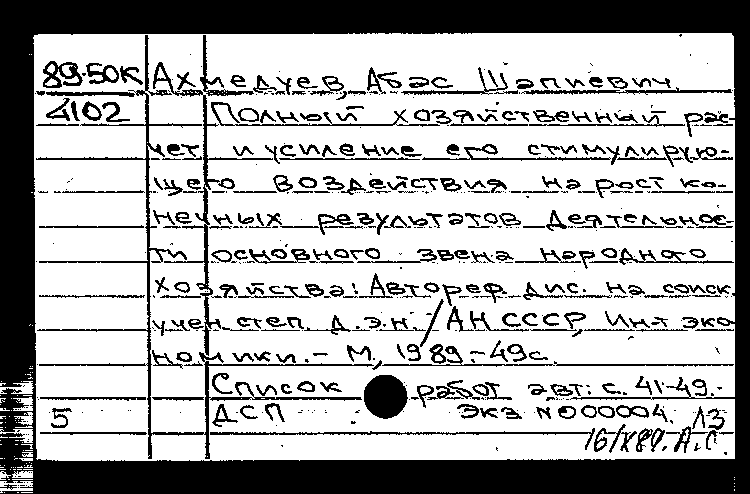 89-50К Ахмедуев, Абас Шапиевич.
4102 Полный хозяйственный рас-
чет и усиление его стимулирую-
щего воздействия на рост ко-
нечных результатов деятельнос-
ти основного звена народного
хозяйства: Автореф. дис. на соиск.
учен. степ. д.э.н. / АН СССР, Ин-т эко-
номики. - М., 1989. - 49с.
Список работ авт.: с. 41-49. -
5 ДСП Экз №000004. ЛЗ
16/X89. А.С.